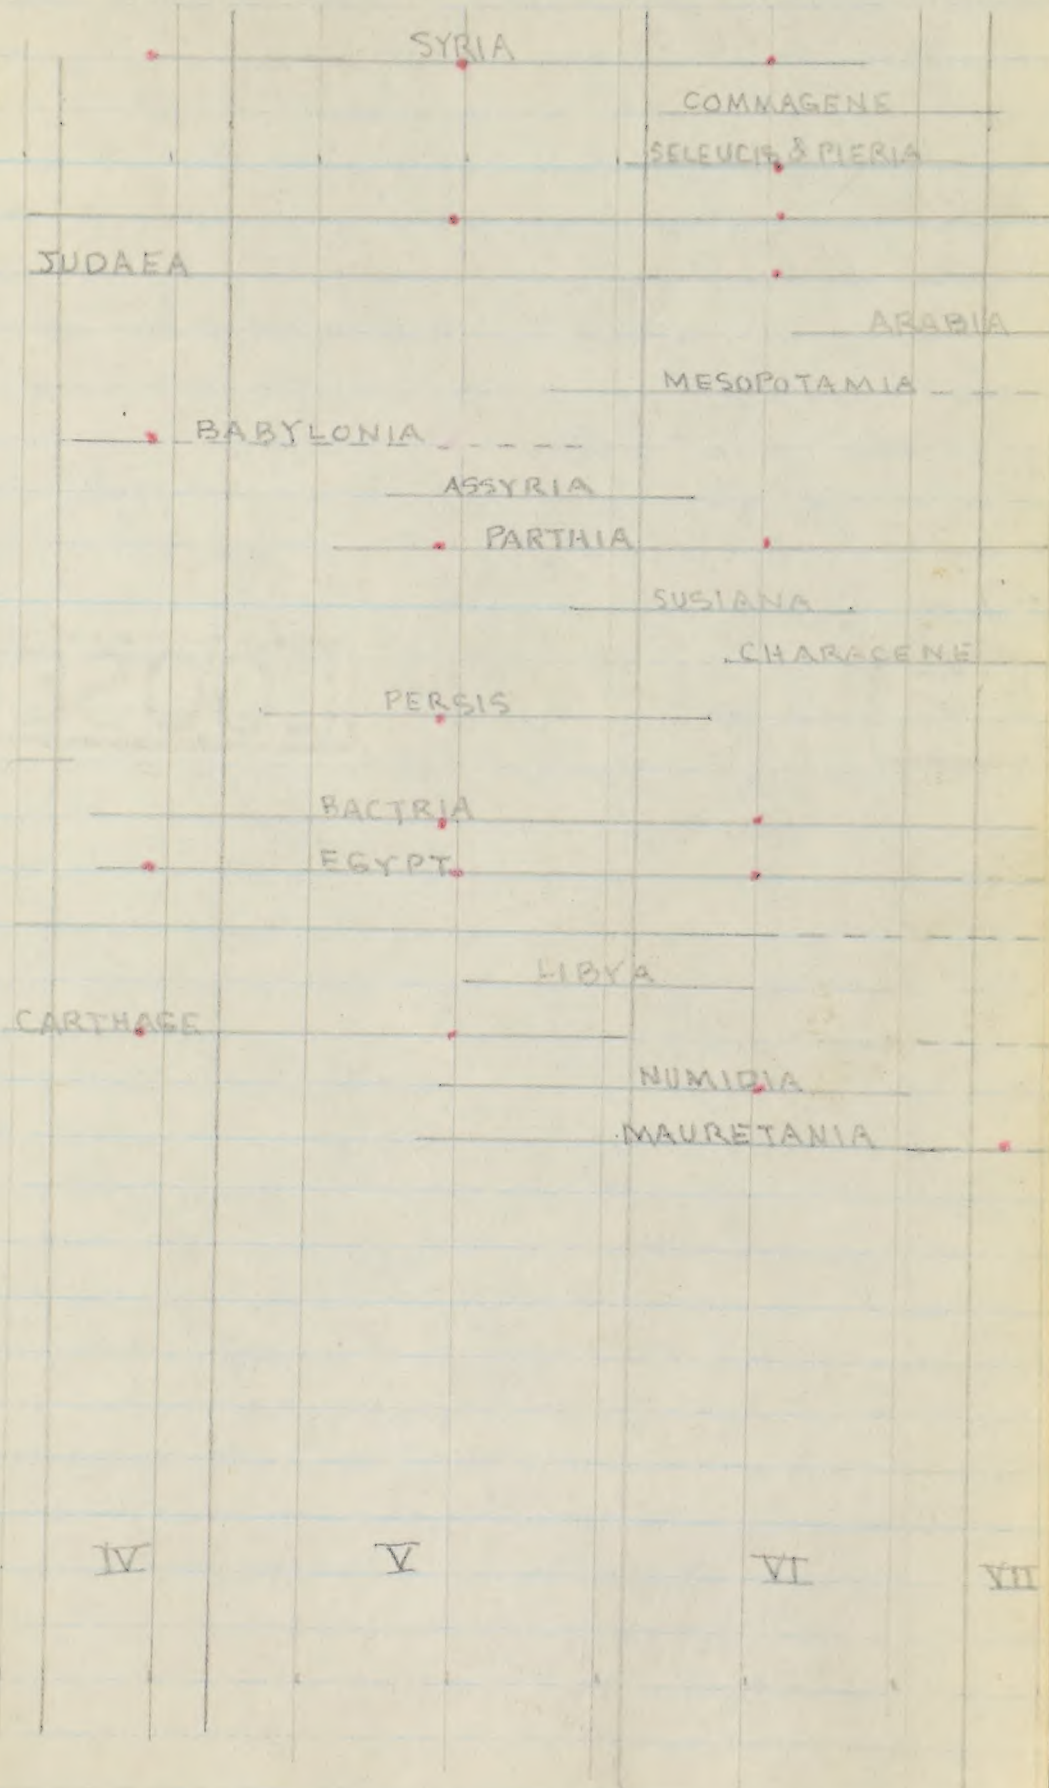 SYRIA
COMMAGENE
SELEUCIS & PIERIA
JUDAEA
ARABIA
MESOPOTAMIA
BABYLONIA
ASSYRIA
PARTHIA
SUSIANA
CHARACENE
PERSIS
BACTRIA
EGYPT
LIBYA
CARTHAGE
NUMIDIA
MAURETANIA
IV V VI VII